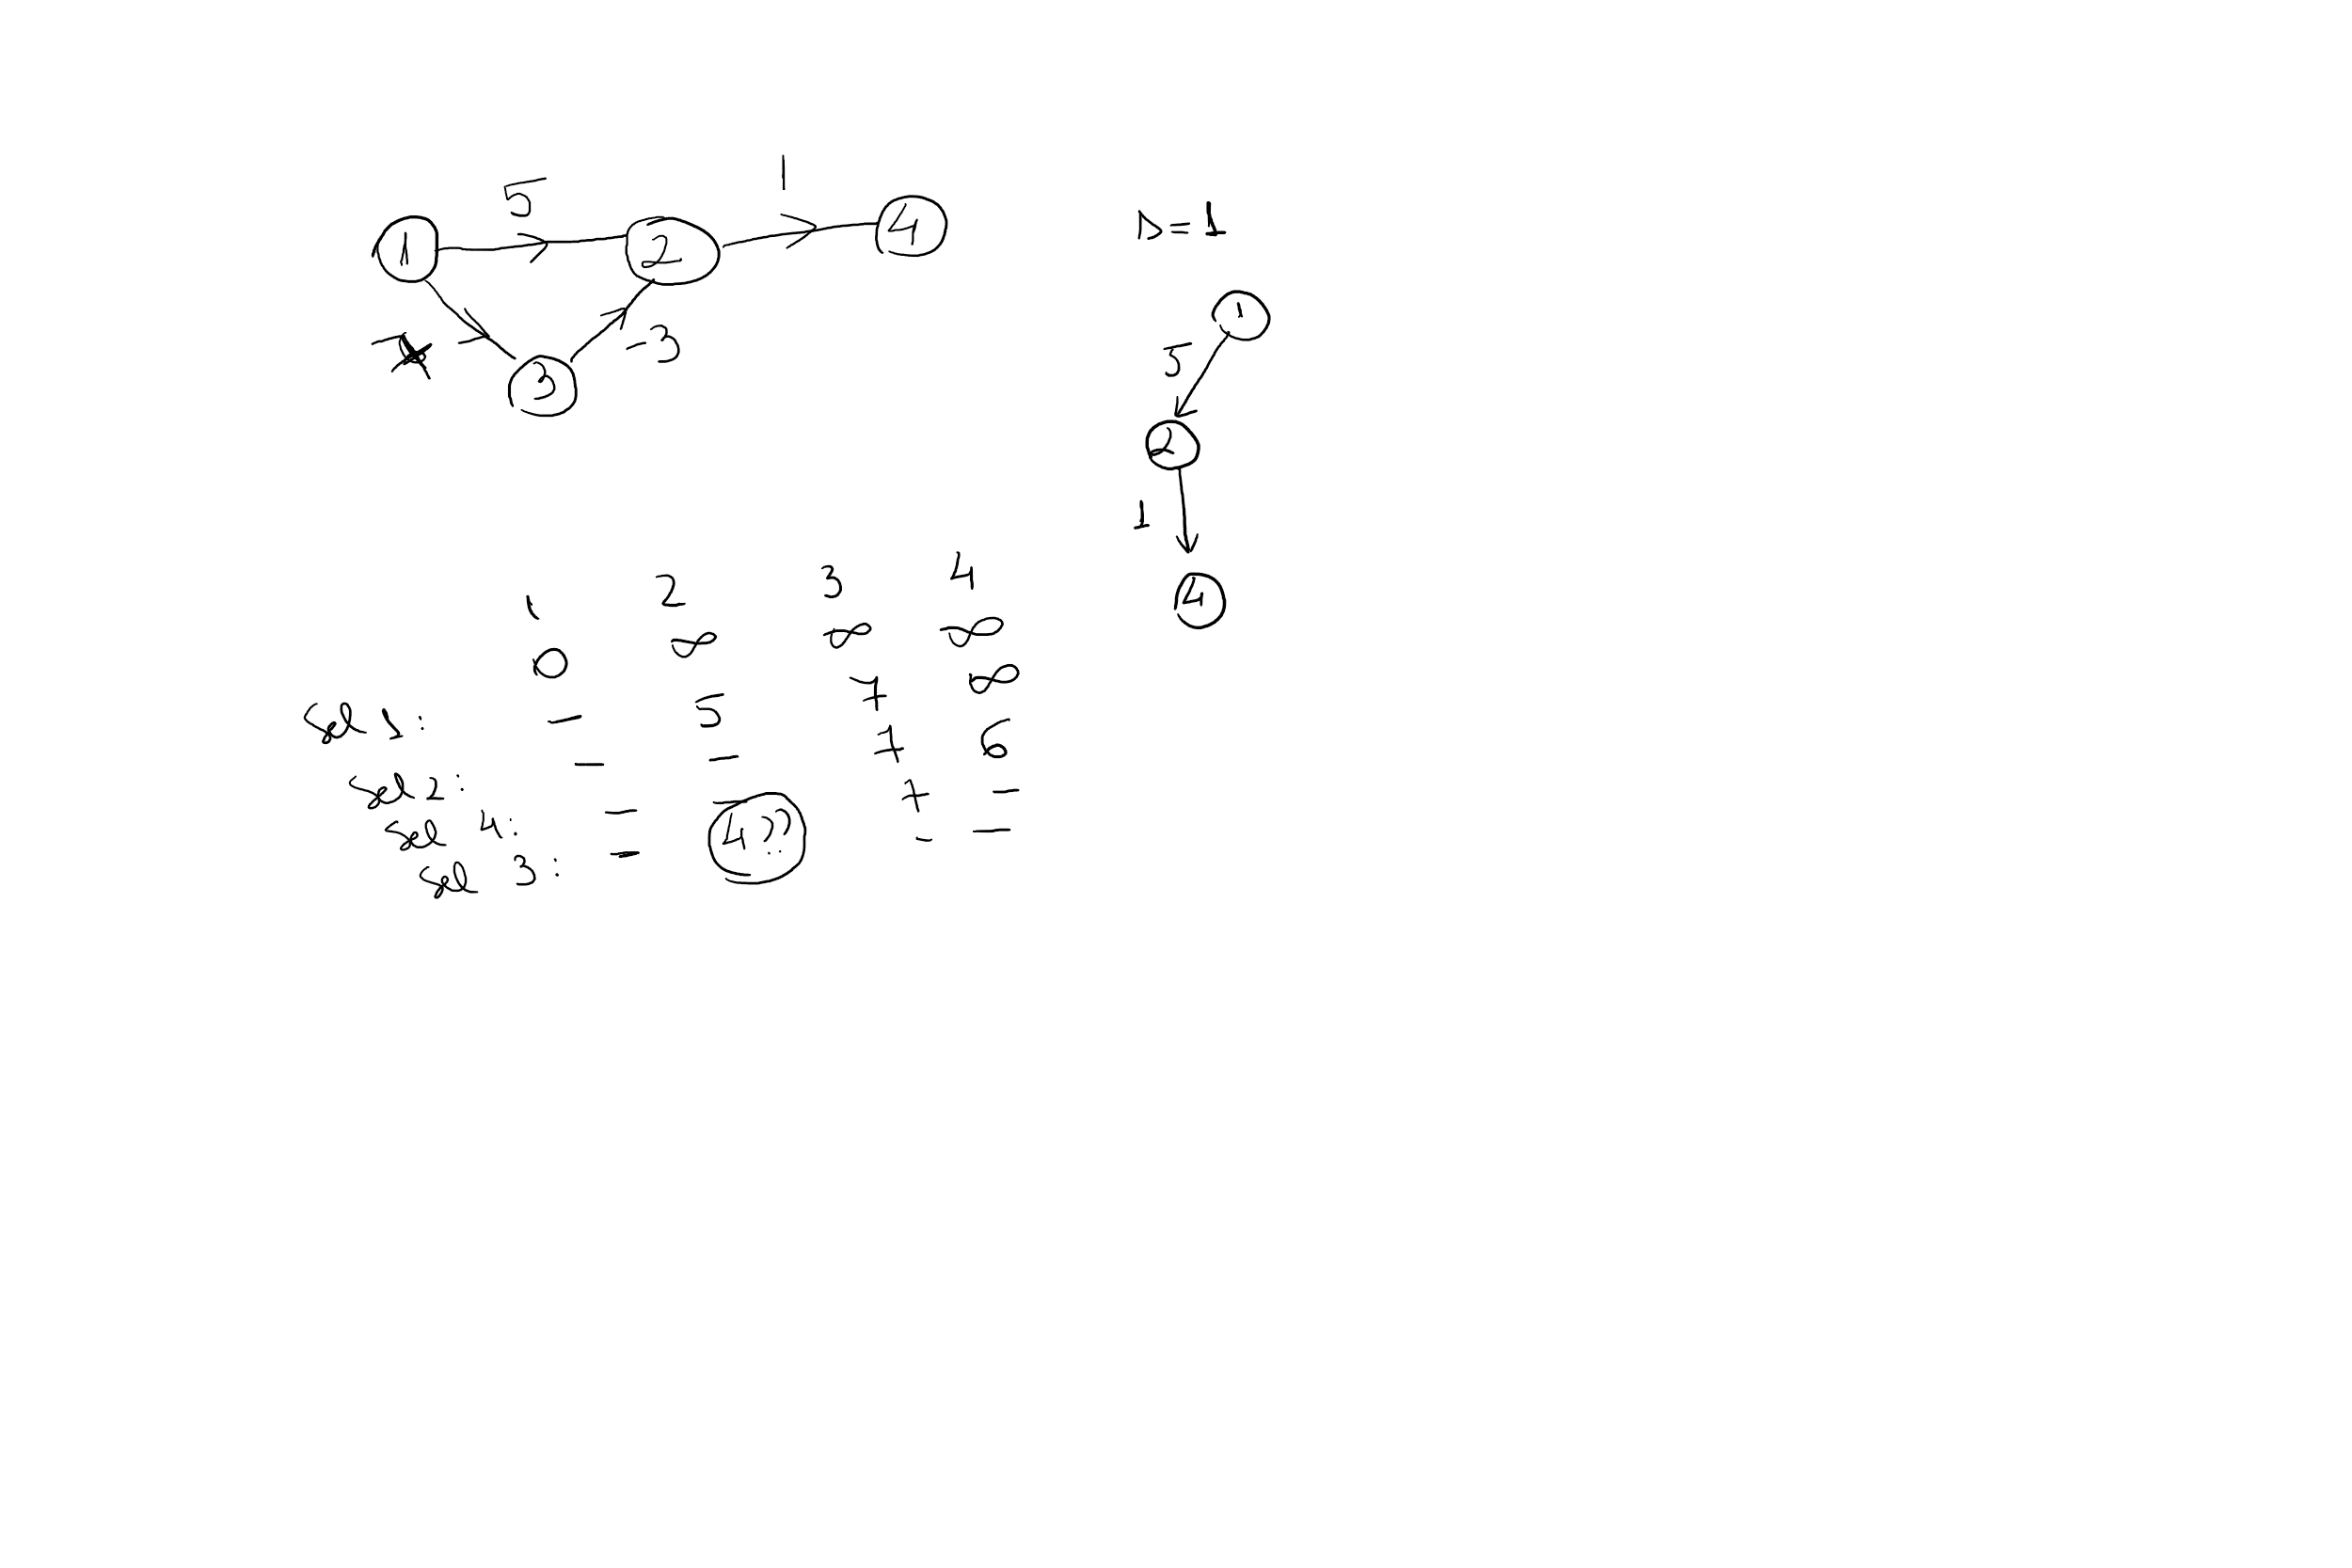 5 1
1 2 4
-3
3
s=1
1
5
2
1
4
1 2 3 4
0 ∞ ∞ ∞
sel 1: - 5 7 ∞
sel 2: - - 7 6
sel 4: - - 7 -
sel 3: - 4?? - -